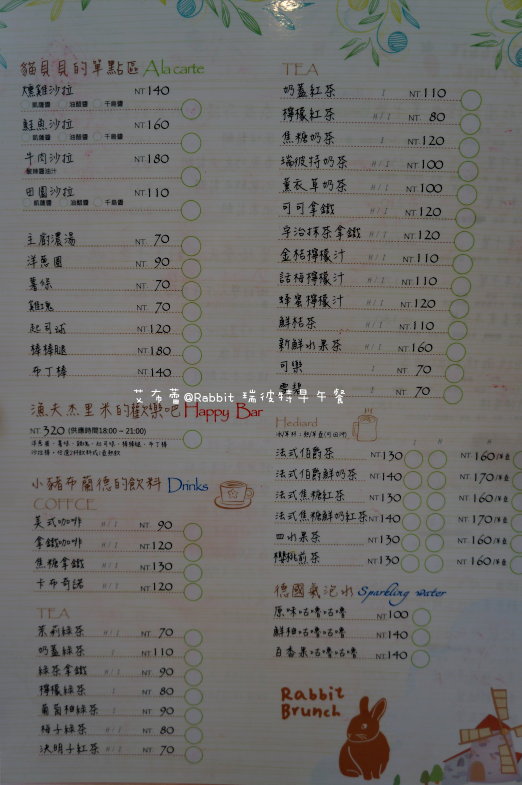 貓貝貝的單點區 A la carte
燻雞沙拉 NT 140
凱薩醬 油醋醬 千島醬
鮭魚沙拉 NT 160
凱薩醬 油醋醬 千島醬
牛肉沙拉 NT 180
田園沙拉 NT 110
凱薩醬 油醋醬 千島醬
主廚濃湯 NT. 70
洋蔥圈 NT. 90
薯條 NT. 70
雞塊 NT. 70
起司球 NT 120
棒棒腿 NT 180
布丁棒 NT. 140
漁夫杰里米的歡樂吧 Happy Bar
NT. 320 (供應時間18:00 ~ 21:00)
小豬布蘭德的飲料 Drinks
COFFCE
美式咖啡 H / I NT 90
拿鐵咖啡 H / I NT 120
焦糖拿鐵 H / I NT 130
卡布奇諾 H / I NT 120
TEA
茉莉綠茶 H / I NT 70
奶蓋綠茶 I NT 110
綠茶拿鐵 H / I NT. 90
檸檬綠茶 I NT 80
葡萄柚綠茶 I NT. 90
梅子綠茶 H / I NT 80
決明子紅茶 H / I NT 70
TEA
奶蓋紅茶 I NT 110
檸檬紅茶 H / I NT 80
焦糖奶茶 I NT 120
瑞彼特奶茶 H / I NT 100
薰衣草奶茶 H / I NT 100
可可拿鐵 H / I NT 120
宇治抹茶拿鐵 H / I NT 120
金桔檸檬汁 H / I NT 110
話梅檸檬汁 H / I NT 110
蜂蜜檸檬汁 H / I NT 120
鮮桔茶 H / I NT 110
新鮮水果茶 H / I NT 160
可樂 I NT 70
雪碧 I NT 70
艾布蕾@Rabbit 瑞彼特早午餐
Hediard
I H H
法式伯爵茶 NT 130 NT 160/壺
法式伯爵鮮奶茶 NT 140 NT 170/壺
法式焦糖紅茶 NT 130 NT 160/壺
法式焦糖鮮奶紅茶 NT 140 NT 170/壺
四水果茶 NT 130 NT 160/壺
櫻桃煎茶 NT 130 NT 160/壺
德國氣泡水 Sparkling water
原味咕嚕咕嚕 NT 100
鮮柚咕嚕咕嚕 NT 140
百香果咕嚕咕嚕 NT 140
Rabbit
Brunch